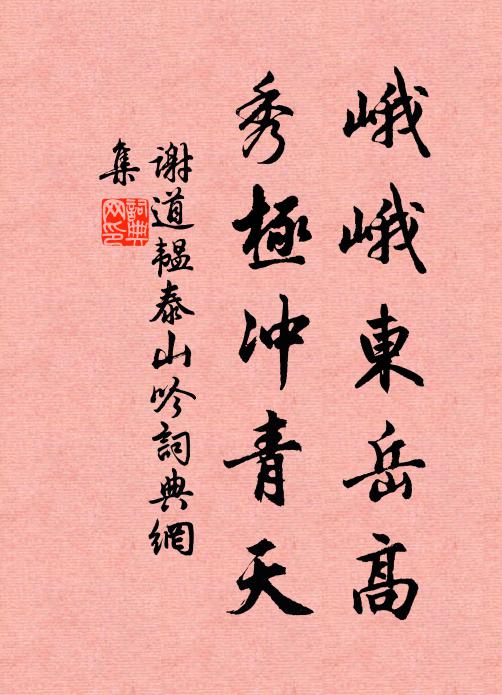 峨峨東岳高
秀極冲青天
謝道韞泰山吟詞典網
集
詞典
网印